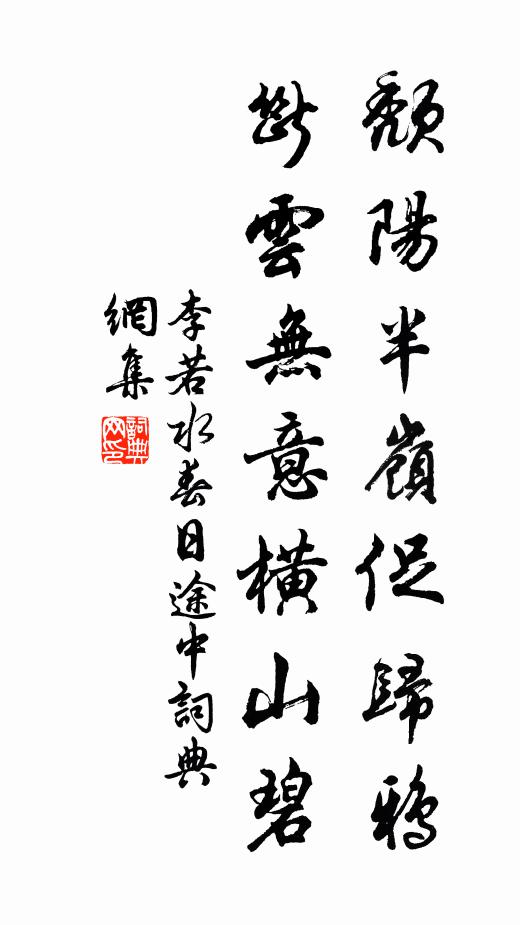 頹陽半嶺促歸鴉
斷雲無意橫山碧
李若水春日途中詞典
網集
詞典网印